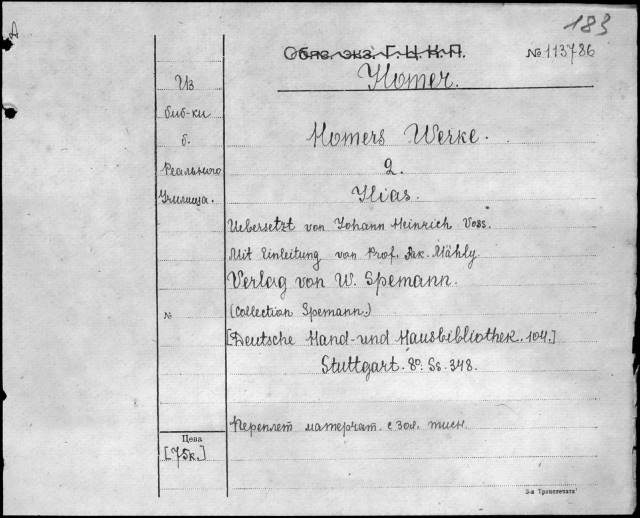 183
Обяз. экз. Г. Ц. К. П.
№ 113786
Homer.
Из
биб-ки
б.
Реального
Училища.
Homers Werke.
2.
Ilias.
Uebersetzt von Johann Heinrich Voss.
Mit Einleitung von Prof. Jak. Mähly.
Verlag von W. Spemann.
№
(Collection Spemann.)
[Deutsche Hand- und Hausbibliothek. 104.]
Stuttgart. 8º. Ss. 348.
Переплет матерчат. с зол. тисн.
Цена
[75к.]
3-я Трансвечать